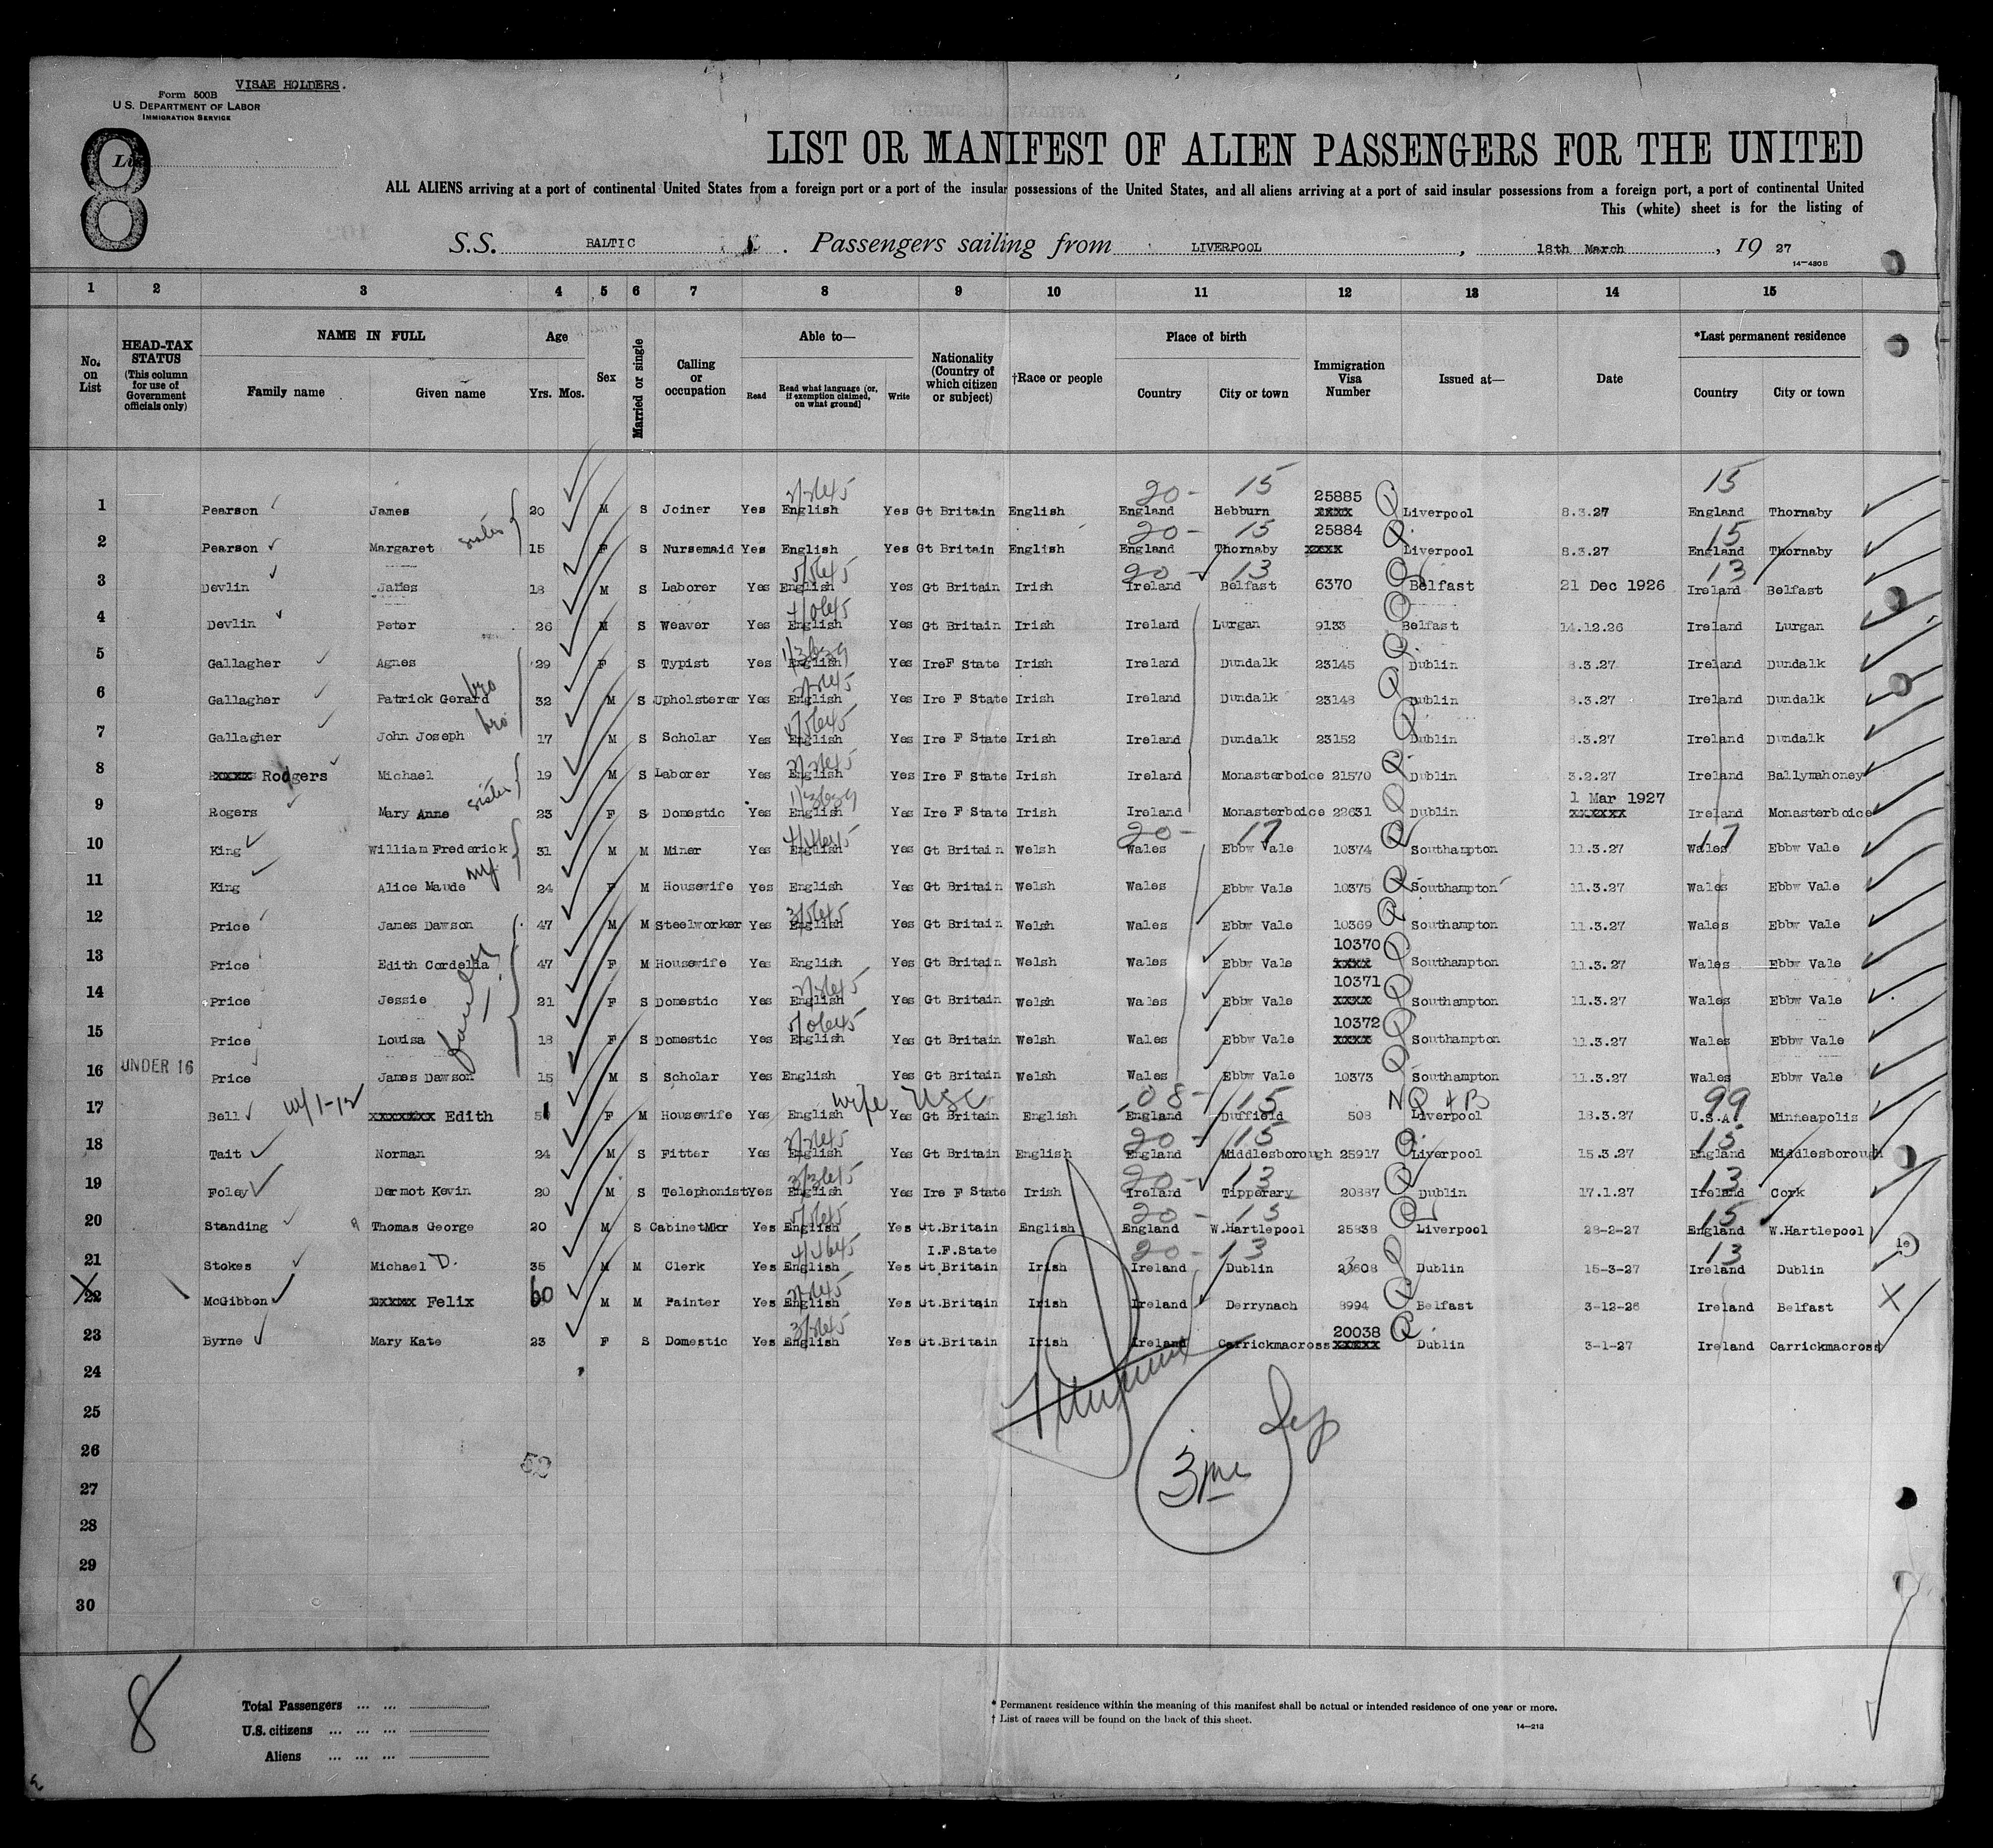 VISAE HOLDERS.
Form 500B
U.S. DEPARTMENT OF LABOR
IMMIGRATION SERVICE
8
List
LIST OR MANIFEST OF ALIEN PASSENGERS FOR THE UNITED
ALL ALIENS arriving at a port of continental United States from a foreign port or a port of the insular possessions of the United States, and all aliens arriving at a port of said insular possessions from a foreign port, a port of continental United
This (white) sheet is for the listing of
S.S. BALTIC . Passengers sailing from LIVERPOOL , 18th March , 19 27
14—480 B
1 2 3 4 5 6 7 8 9 10 11 12 13 14 15
No. on List
HEAD-TAX STATUS (This column for use of Government officials only)
NAME IN FULL
Family name Given name
Age
Yrs. Mos.
Sex
Married or single
Calling or occupation
Able to—
Read
Read what language (or, if exemption claimed, on what ground)
Write
Nationality (Country of which citizen or subject)
†Race or people
Place of birth
Country City or town
Immigration Visa Number
Issued at—
Date
*Last permanent residence
Country City or town
20- 15 15
1 Pearson James 20 M S Joiner Yes English Yes Gt Britain English England Hebburn 25885 xxxx Liverpool 8.3.27 England Thornaby
sister 20- 15 15
2 Pearson Margaret 15 F S Nursemaid Yes English Yes Gt Britain English England Thornaby 25884 xxxx Liverpool 8.3.27 England Thornaby
20- 13 13
3 Devlin James 18 M S Laborer Yes English Yes Gt Britain Irish Ireland Belfast 6370 Belfast 21 Dec 1926 Ireland Belfast
4 Devlin Peter 26 M S Weaver Yes English Yes Gt Britain Irish Ireland Lurgan 9133 Belfast 14.12.26 Ireland Lurgan
5 Gallagher Agnes 29 F S Typist Yes English Yes IreF State Irish Ireland Dundalk 23145 Dublin 8.3.27 Ireland Dundalk
6 Gallagher Patrick Gerard bro 32 M S Upholsterer Yes English Yes Ire F State Irish Ireland Dundalk 23148 Dublin 8.3.27 Ireland Dundalk
7 Gallagher John Joseph bro 17 M S Scholar Yes English Yes Ire F State Irish Ireland Dundalk 23152 Dublin 8.3.27 Ireland Dundalk
8 xxxxx Rodgers Michael 19 M S Laborer Yes English Yes Ire F State Irish Ireland Monasterboice 21570 Dublin 3.2.27 Ireland Ballymahoney
9 Rogers Mary Anne sister 23 F S Domestic Yes English Yes Ire F State Irish Ireland Monasterboice 22631 Dublin 1 Mar 1927 xxxxxx Ireland Monasterboice
20- 17 17
10 King William Frederick 31 M M Miner Yes English Yes Gt Britain Welsh Wales Ebbw Vale 10374 Southampton 11.3.27 Wales Ebbw Vale
11 King Alice Maude 24 F M Housewife Yes English Yes Gt Britain Welsh Wales Ebbw Vale 10375 Southampton 11.3.27 Wales Ebbw Vale
12 Price James Dawson 47 M M Steelworker Yes English Yes Gt Britain Welsh Wales Ebbw Vale 10369 Southampton 11.3.27 Wales Ebbw Vale
13 Price Edith Cordelia 47 F M Housewife Yes English Yes Gt Britain Welsh Wales Ebbw Vale 10370 xxxx Southampton 11.3.27 Wales Ebbw Vale
family
14 Price Jessie 21 F S Domestic Yes English Yes Gt Britain Welsh Wales Ebbw Vale 10371 xxxx Southampton 11.3.27 Wales Ebbw Vale
15 Price Louisa 18 F S Domestic Yes English Yes Gt Britain Welsh Wales Ebbw Vale 10372 xxxx Southampton 11.3.27 Wales Ebbw Vale
16 UNDER 16 Price James Dawson 15 M S Scholar Yes English Yes Gt Britain Welsh Wales Ebbw Vale 10373 Southampton 11.3.27 Wales Ebbw Vale
wife USC 08- 15 NQ 4B 99
17 Bell xxxxxxx Edith 51 F M Housewife Yes English Yes Gt Britain English England Duffield 508 Liverpool 18.3.27 U.S.A. Minneapolis
20- 15 15
18 Tait Norman 24 M S Fitter Yes English Yes Gt Britain English England Middlesborough 25917 Liverpool 15.3.27 England Middlesborough
20- 13 13
19 Foley Dermot Kevin 20 M S Telephonist Yes English Yes Ire F State Irish Ireland Tipperary 20887 Dublin 17.1.27 Ireland Cork
20- 15 15
20 Standing Thomas George 20 M S CabinetMkr Yes English Yes Gt.Britain English England W.Hartlepool 25838 Liverpool 28-2-27 England W.Hartlepool
20- 13 13
21 Stokes Michael D. 35 M M Clerk Yes English Yes I.F.State Gt Britain Irish Ireland Dublin 23608 Dublin 15-3-27 Ireland Dublin
22 McGibbon xxxxx Felix 60 M M Painter Yes English Yes Gt.Britain Irish Ireland Derrynach 8994 Belfast 3-12-26 Ireland Belfast X
23 Byrne Mary Kate 23 F S Domestic Yes English Yes Gt.Britain Irish Ireland Carrickmacross 20038 xxxxx Dublin 3-1-27 Ireland Carrickmacross
24
25
26
27
28
29
30
8
Total Passengers ... ...
U.S. citizens ... ... ...
Aliens ... ... ...
* Permanent residence within the meaning of this manifest shall be actual or intended residence of one year or more.
† List of races will be found on the back of this sheet.
14—213